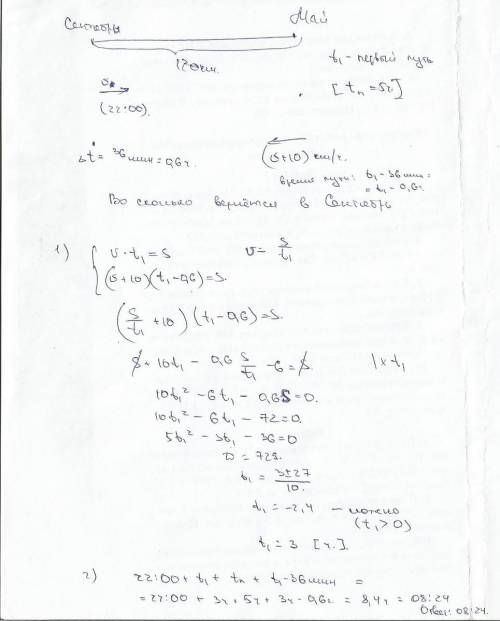 Сентябрь Май
120км.
t₁ - первый путь
v
(22:00).
[tп = 5ч]
Δt = 36 мин = 0,6ч.
(v+10) км/ч.
время пути: t₁ - 36 мин =
= t₁ - 0,6ч
Во сколько вернётся в Сентябрь
1) { v · t₁ = S
v = S/t₁
(v+10)(t₁-0,6)=S.
(S/t₁ + 10)(t₁-0,6)=S.
S + 10t₁ - 0,6 S/t₁ - 6 = S |×t₁
10t₁² - 6t₁ - 0,6S = 0.
10t₁² - 6t₁ - 72 = 0.
5t₁² - 3t₁ - 36 = 0
D = 729.
t₁ = 3±27/10.
t₁ = -2,4 - ложно
(t₁ > 0)
t₁ = 3 [ч.].
2) 22:00 + t₁ + tп + t₁ - 36 мин =
= 22:00 + 3ч + 5ч + 3ч - 0,6ч = 8,4ч = 08:24
Ответ: 08:24.